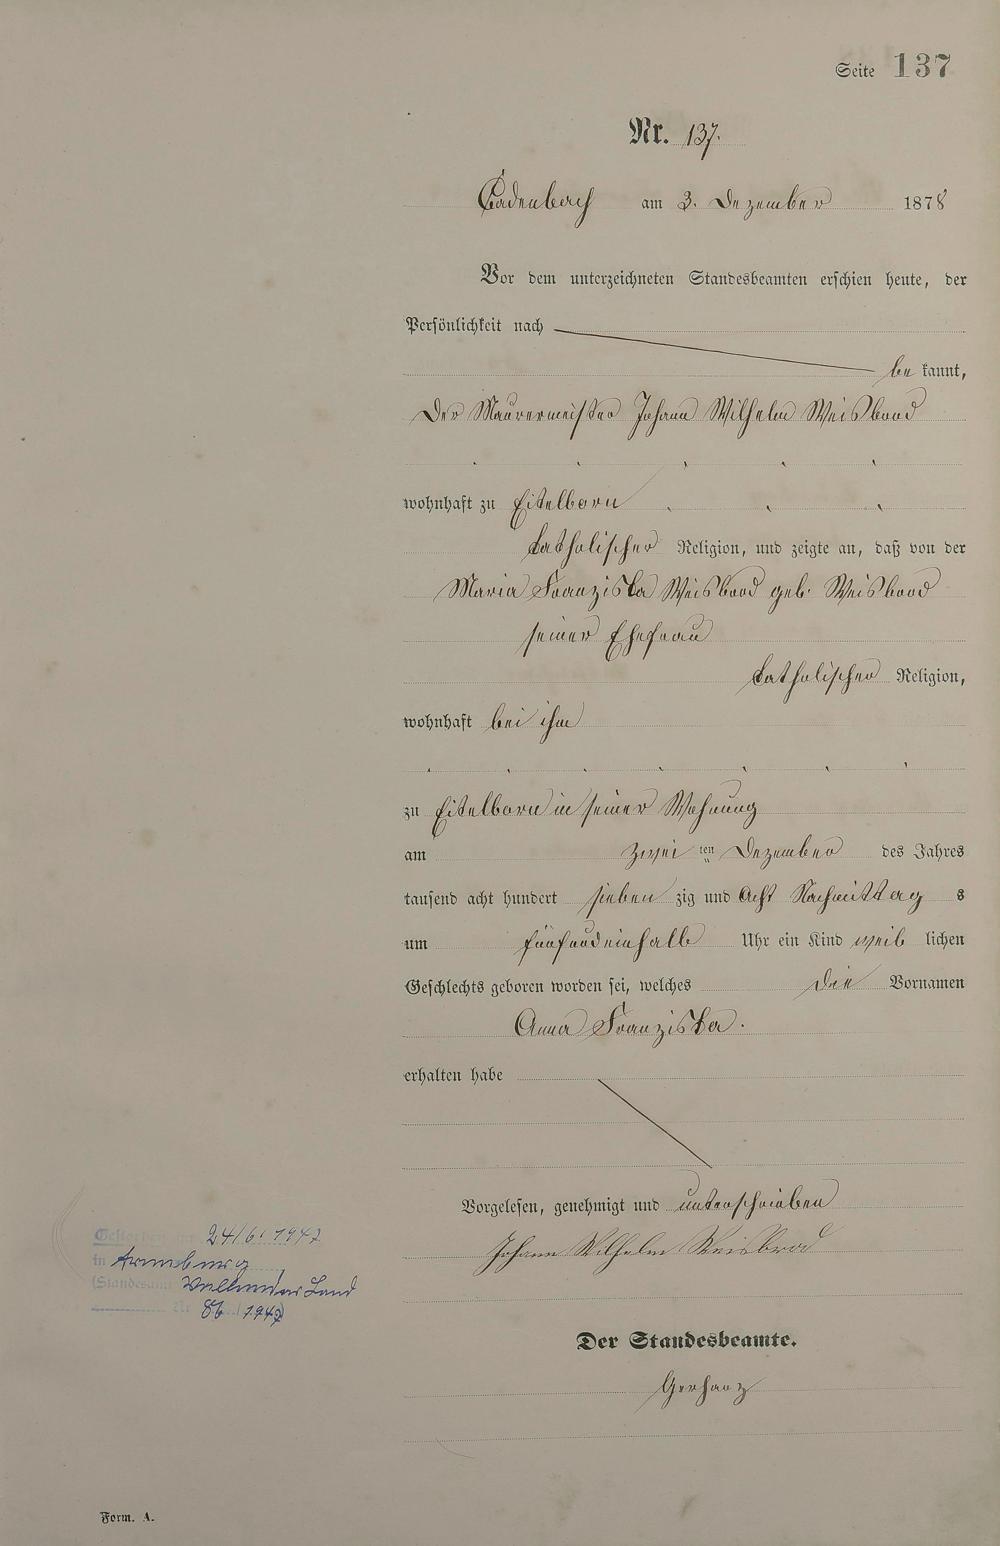 Seite 137
Nr. 137.
Cadenbach am 3. Dezember 1878
Vor dem unterzeichneten Standesbeamten erschien heute, der
Persönlichkeit nach
be kannt,
Der Maurermeister Johann Wilhelm Weisbrod
wohnhaft zu Eitelborn
katholischer Religion, und zeigte an, daß von der
Maria Franziska Weisbrod geb. Weisbrod
seiner Ehefrau
katholischer Religion,
wohnhaft bei ihm
zu Eitelborn in seiner Wohnung
am zwei ten Dezember des Jahres
tausend acht hundert sieben zig und Acht Nachmittag s
um fünfundeinhalb Uhr ein Kind weib lichen
Geschlechts geboren worden sei, welches die Vornamen
Anna Franziska.
erhalten habe
Vorgelesen, genehmigt und unterschrieben
Johann Wilhelm Weisbrod
Gestorben am 24/6. 1947
in
(Standesamt Land
Nr. 86 / 1947)
Der Standesbeamte.
Gerharz
Form. A.